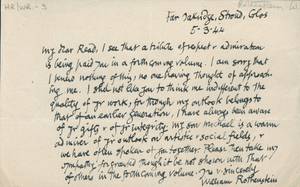 HR/WR-3
Far Oakridge, Stroud, Glos
5-3-44
My dear Read, I see that a tribute of respect & admiration
is being paid you in a forthcoming volume. I am sorry that
I send nothing of this, no one having thought of approach-
ing me. I shd not like you to think me indifferent to the
quality of yr work, for though my outlook belongs to
that of an earlier generation, I have always been aware
of yr gifts & of yr integrity. My son Michael is a warm
admirer of yr outlook on artistic & social fields, &
we have often spoken of you together. Please then take my
sympathy for granted though it be not shown with that
of others in the forthcoming volume. Yrs v sincerely
William Rothenstein